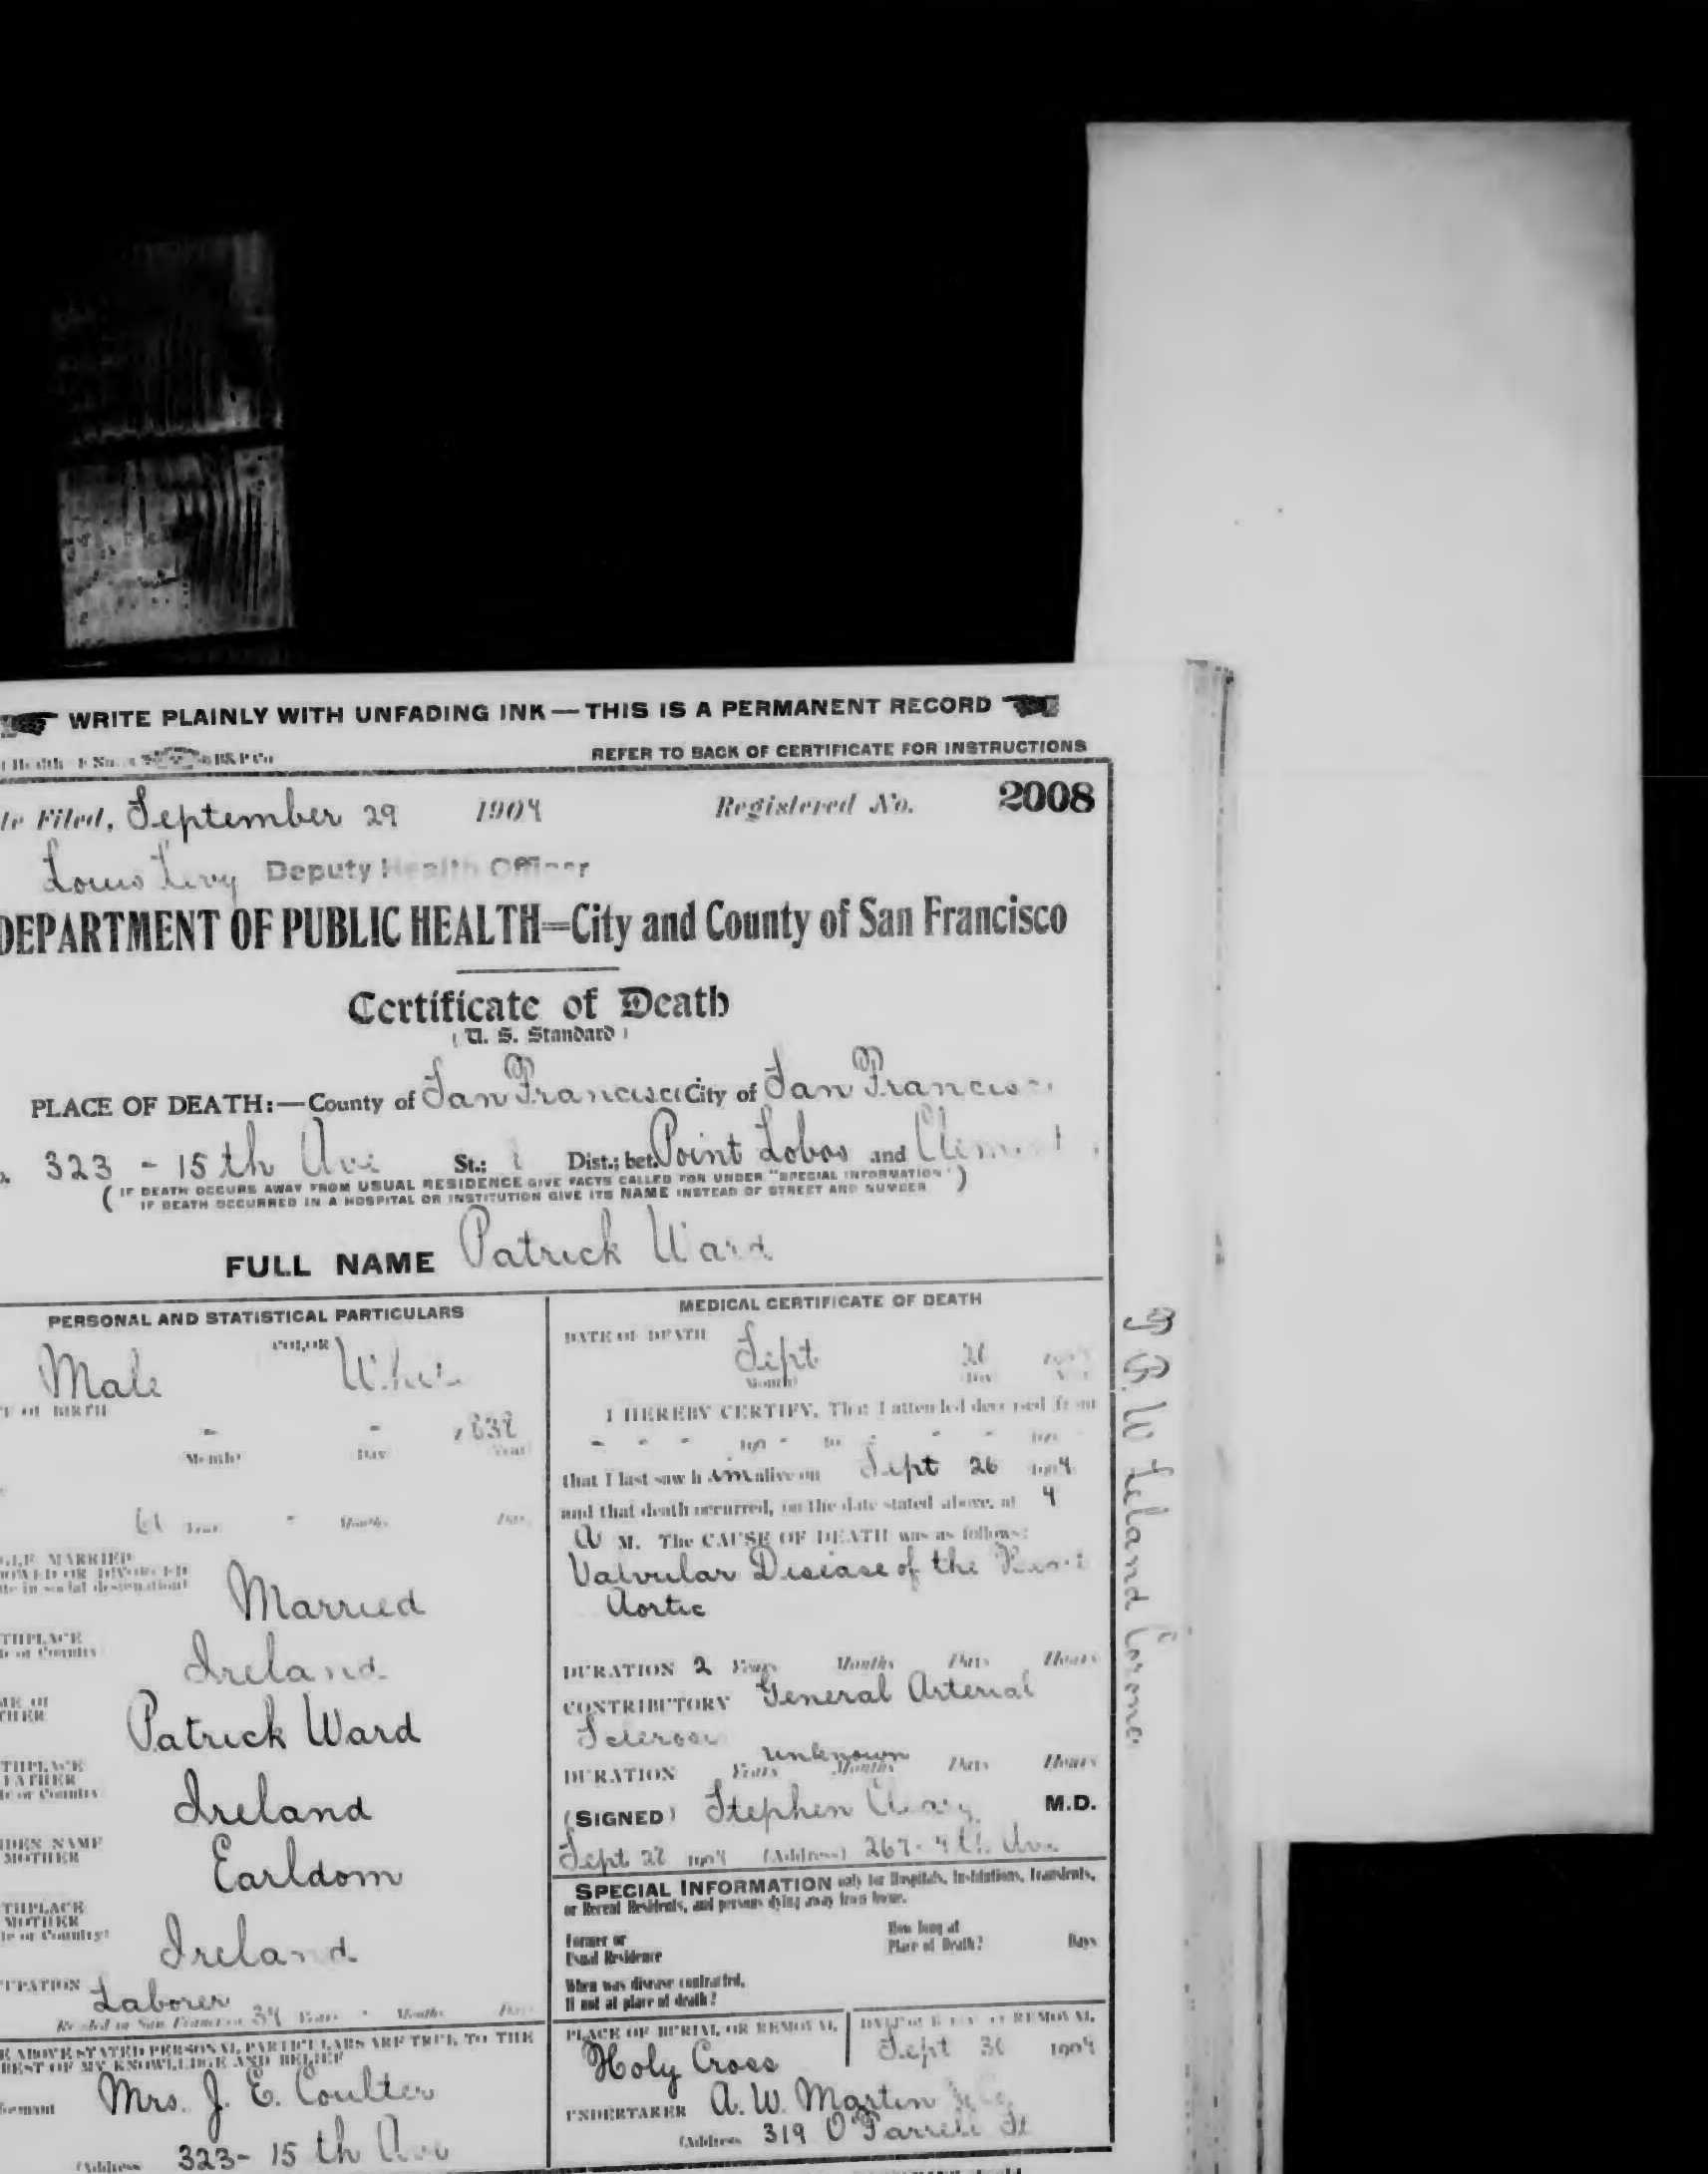 WRITE PLAINLY WITH UNFADING INK — THIS IS A PERMANENT RECORD
REFER TO BACK OF CERTIFICATE FOR INSTRUCTIONS
te Filed, September 29 1904 Registered No. 2008
Louis Levy Deputy Health Officer
DEPARTMENT OF PUBLIC HEALTH=City and County of San Francisco
Certificate of Death
( U. S. Standard )
PLACE OF DEATH:—County of San Francisco City of San Francisco
323 - 15th Ave St.; Dist.; bet. Point Lobos and
( IF DEATH OCCURS AWAY FROM USUAL RESIDENCE GIVE FACTS CALLED FOR UNDER "SPECIAL INFORMATION" )
IF DEATH OCCURRED IN A HOSPITAL OR INSTITUTION GIVE ITS NAME INSTEAD OF STREET AND NUMBER
FULL NAME Patrick Ward
PERSONAL AND STATISTICAL PARTICULARS
COLOR
Male White
OF BIRTH
- -
Month Day Year
Years - Months Days
MARRIED
OWED OR DIVORCED
te in social designation)
Married
THPLACE
or Country
Ireland
ME OF
THER
Patrick Ward
THPLACE
FATHER
or Country
Ireland
IDEN NAME
MOTHER
Earldom
THPLACE
MOTHER
te or Country)
Ireland
CUPATION
Laborer
Resided in San Francisco Years - Months Days
E ABOVE STATED PERSONAL PARTICULARS ARE TRUE TO THE
BEST OF MY KNOWLEDGE AND BELIEF
formant Mrs. J. E. Coulter
(Address 323- 15th Ave
MEDICAL CERTIFICATE OF DEATH
DATE OF DEATH
Sept 26 1904
Month Day
I HEREBY CERTIFY, That I attended deceased from
- - - 190 - to - - - 190
that I last saw him alive on Sept 26 1904
and that death occurred, on the date stated above, at 4
A M. The CAUSE OF DEATH was as follows:
Valvular Disease of the Heart
Aortic
DURATION 2 Years Months Days Hours
CONTRIBUTORY General Arterial
Sclerosis
unknown
DURATION Years Months Days Hours
(SIGNED) Stephen Cleary M.D.
Sept 1904 (Address) 267- 4th Ave
SPECIAL INFORMATION only for Hospitals, Institutions, Transients,
or Recent Residents, and persons dying away from home.
Former or
Usual Residence
How long at
Place of Death? Days
When was disease contracted,
If not at place of death?
PLACE OF BURIAL OR REMOVAL
Holy Cross
DATE OF BURIAL OR REMOVAL
Sept 30 1904
UNDERTAKER A. W. Martin & Co
(Address 319 O'Farrell St
B. W. Leland Coroner